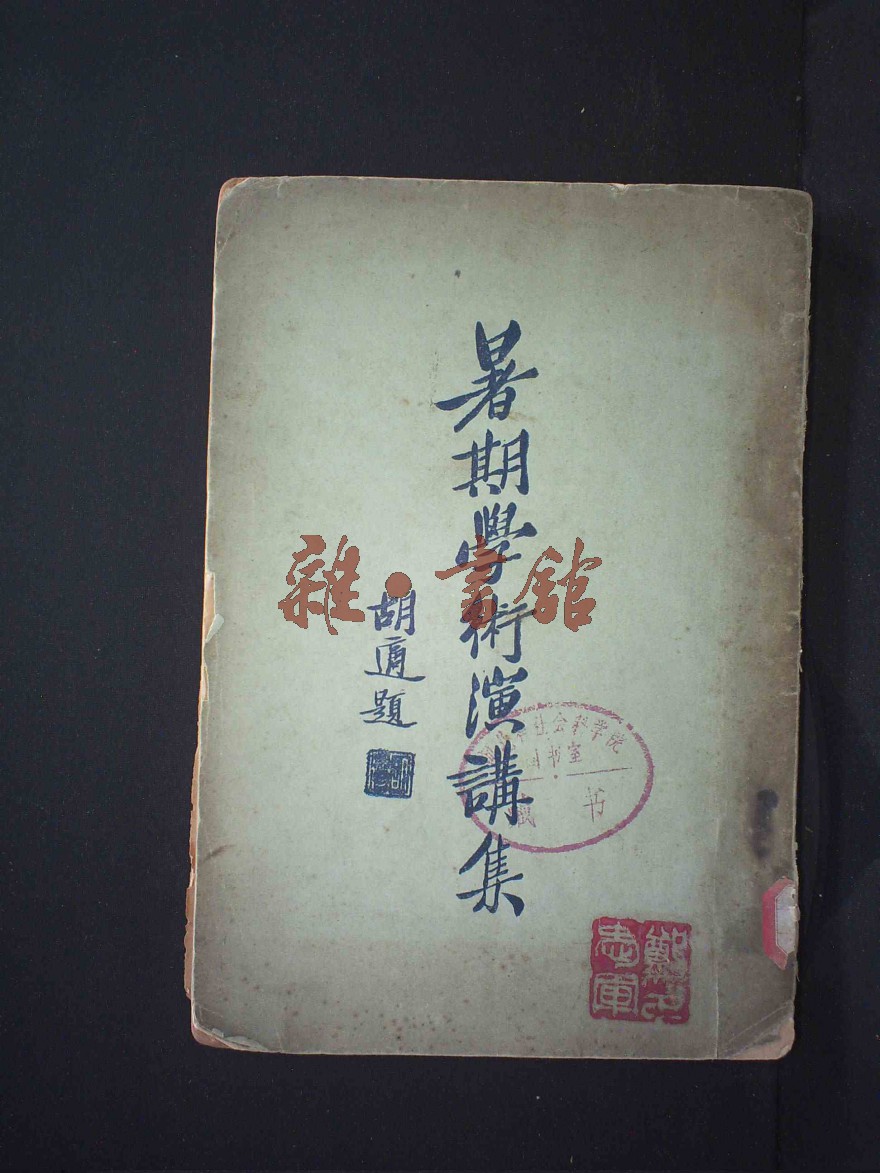 暑期學術演講集
胡適題
雜·書館
社会科学院
书室
藏书